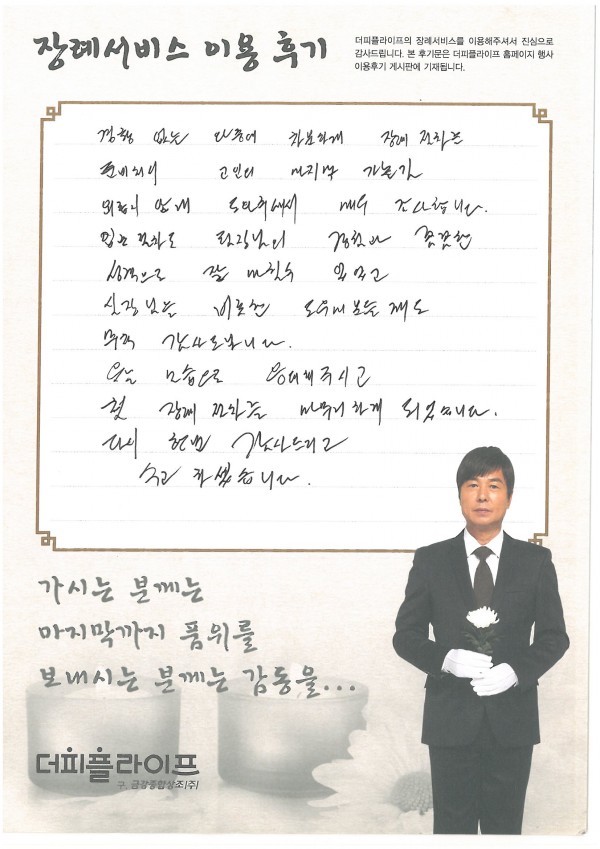 장례서비스 이용 후기
더피플라이프의 장례서비스를 이용해주셔서 진심으로
감사드립니다. 본 후기문은 더피플라이프 홈페이지 행사
이용후기 게시판에 기재됩니다.
경황 없는 와중에 차분하게 장례 절차를
준비하여 고인의 마지막 가는길
외롭지 않게 도와주셔서 매우 감사합니다.
입관 절차도 팀장님의 경험과 꼼꼼한
성격으로 잘 마칠수 있었고
실장님들 비롯한 도우미 분들께도
무척 감사드립니다.
모습으로 응대해주시고
장례 절차를 마무리 하게 되었습니다.
다시 한번 감사드리고
수고 하셨습니다.
가시는 분께는
마지막까지 품위를
보내시는 분께는 감동을...
더피플라이프
구. 금강종합상조(주)